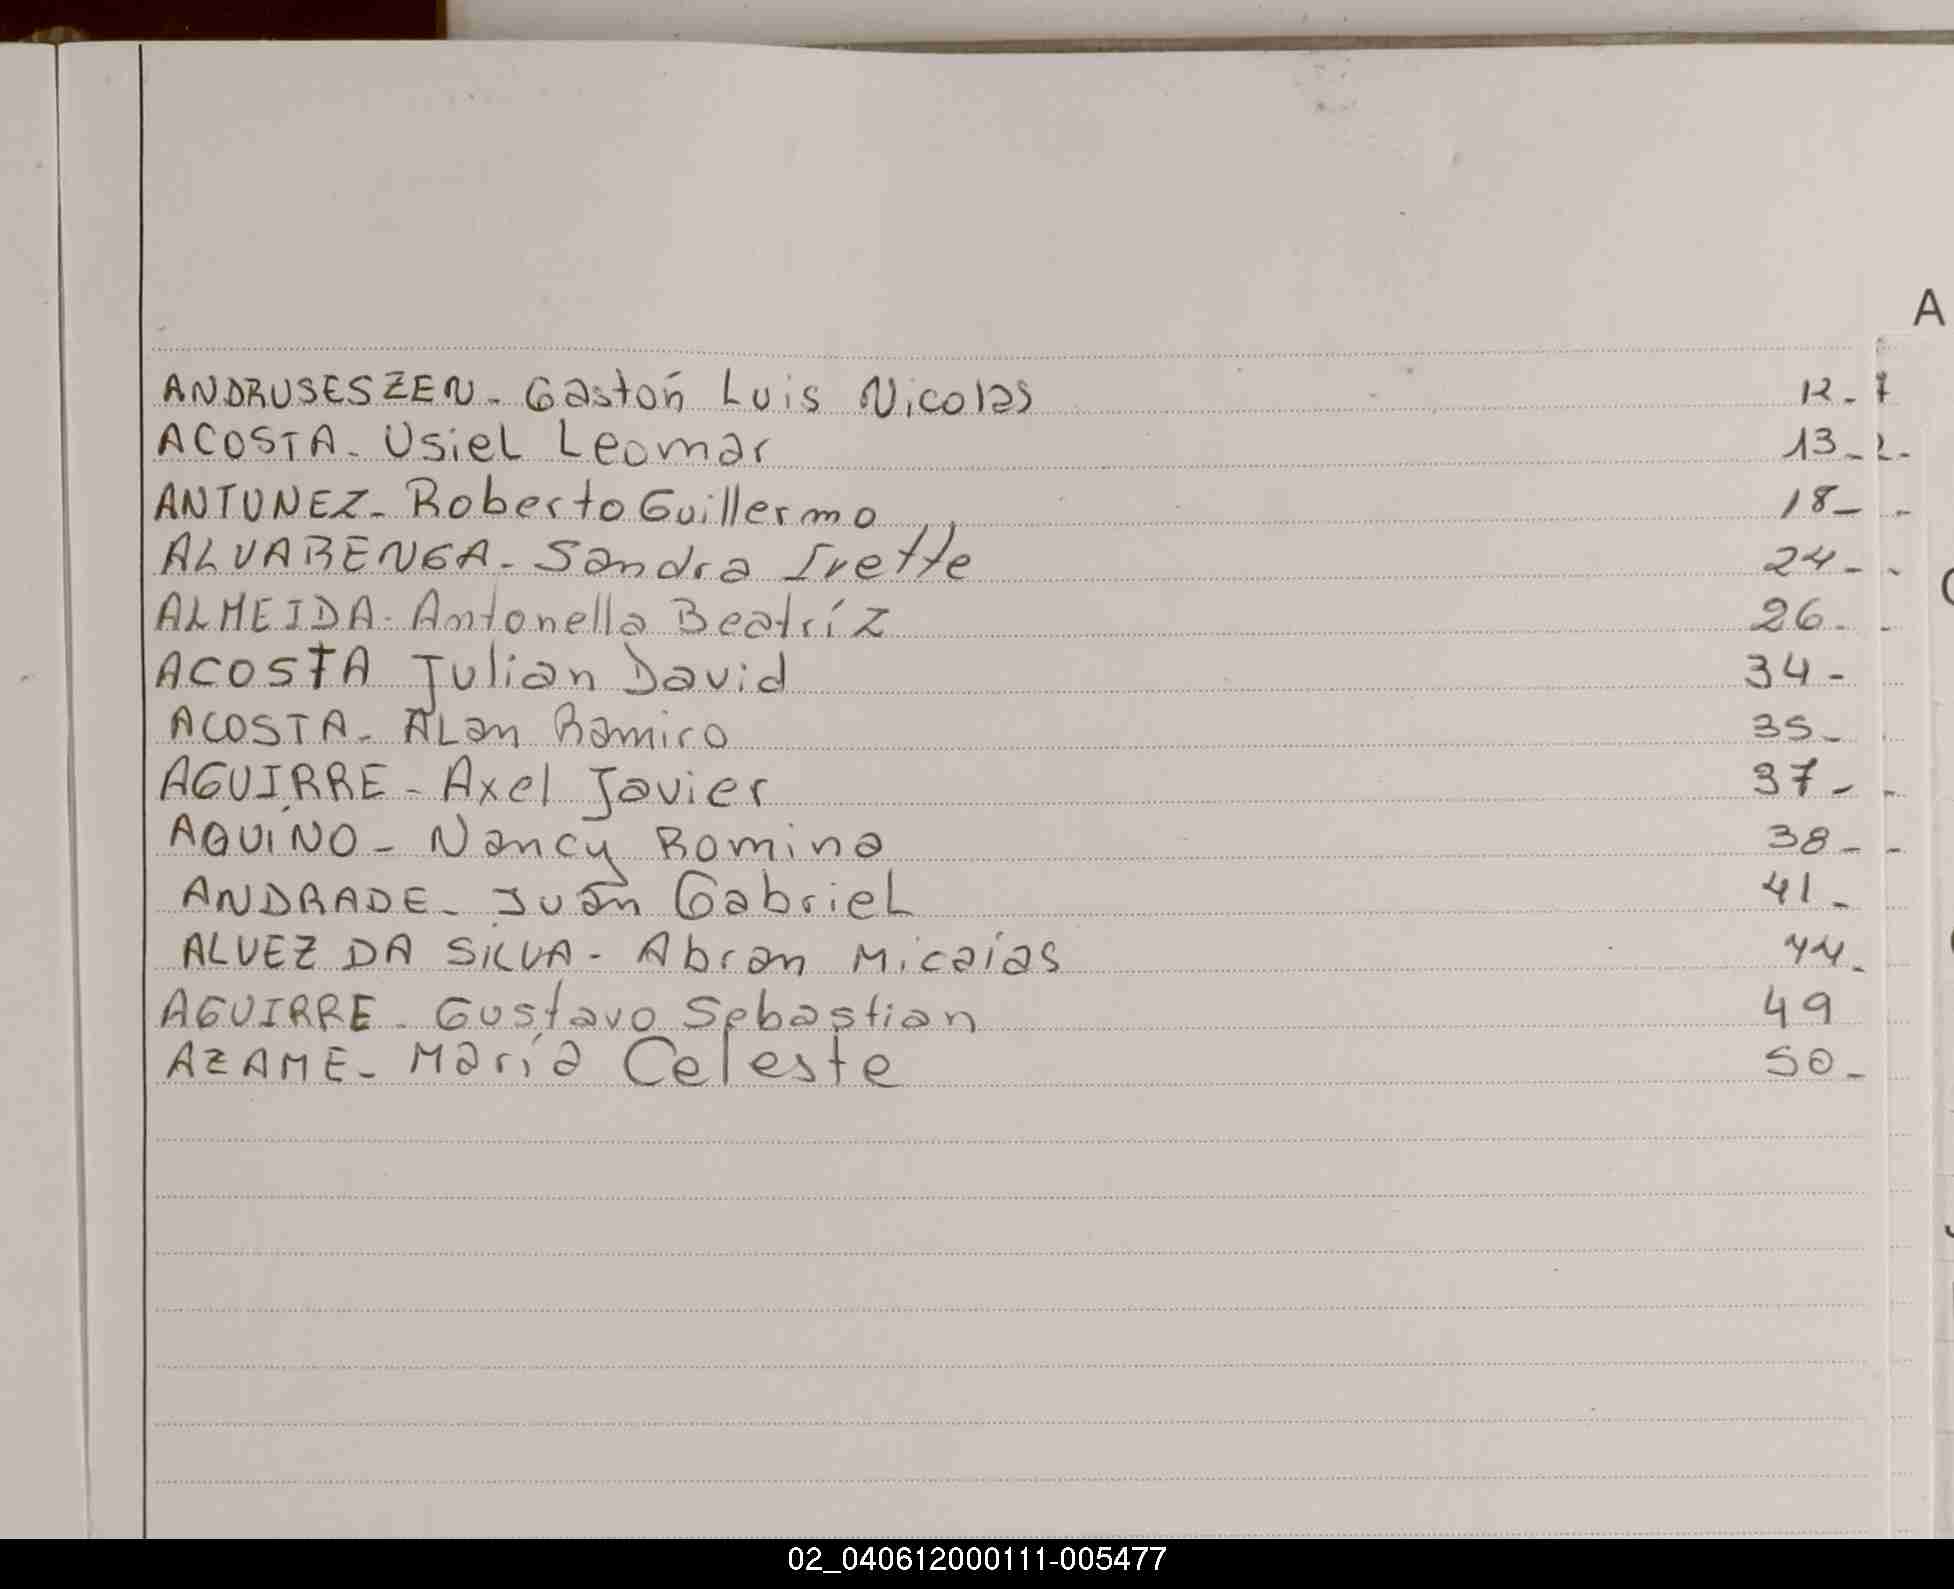 A
ANDRUSESZEN - Gastón Luis Nicolas 12 - 7
ACOSTA - Usiel Leomar 13 - 2 -
ANTUNEZ - Roberto Guillermo 18 - -
ALVARENGA - Sandra Ivette 24 - -
ALMEIDA - Antonella Beatríz 26 - -
ACOSTA Julian David 34 -
ACOSTA - ALan Ramiro 35 -
AGUIRRE - Axel Javier 37 - -
AQUINO - Nancy Romina 38 - -
ANDRADE - Juan Gabriel 41 -
ALVEZ DA SILVA - Abran Micaías 44 -
AGUIRRE - Gustavo Sebastian 49
AZAME - María Celeste 50 -
02_040612000111-005477